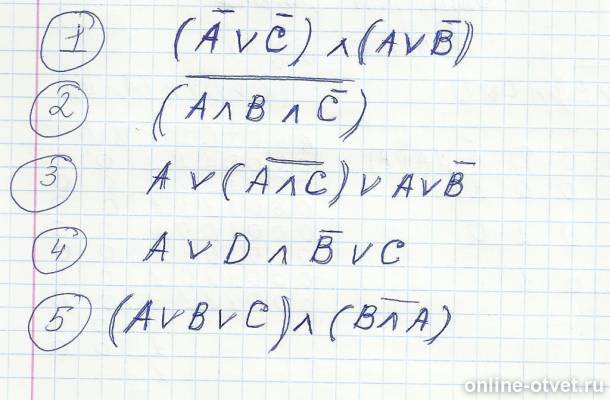 1 (A̅ ∨ C̅) ∧ (A ∨ B̅)
2 (A̅ ̅∧̅ ̅B̅ ̅∧̅ ̅C̿)
3 A ∨ (A̅ ̅∧̅ ̅C̅) ∨ A ∨ B̅
4 A ∨ D ∧ B̅ ∨ C
5 (A ∨ B ∨ C) ∧ (B̅ ̅∧̅ ̅A̅)
online-otvet.ru